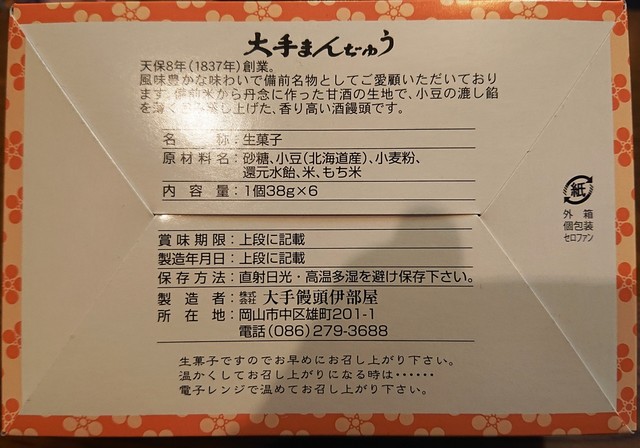 大手まんぢゅう
天保8年(1837年)創業。
風味豊かな味わいで備前名物としてご愛顧いただいており
ます。備前米から丹念に作った甘酒の生地で、小豆の漉し餡
を薄く 蒸し上げた、香り高い酒饅頭です。
名 称:生菓子
原材料名:砂糖、小豆(北海道産)、小麦粉、
還元水飴、米、もち米
内容量:1個38g×6
賞味期限:上段に記載
製造年月日:上段に記載
保存方法:直射日光・高温多湿を避け保存下さい。
製造者:株式会社 大手饅頭伊部屋
所在地:岡山市中区雄町201-1
電話(086)279-3688
生菓子ですのでお早めにお召し上がり下さい。
温かくしてお召し上がりになる時は‥‥‥
電子レンジで温めてお召し上がり下さい。
紙
外箱
個包装
セロファン